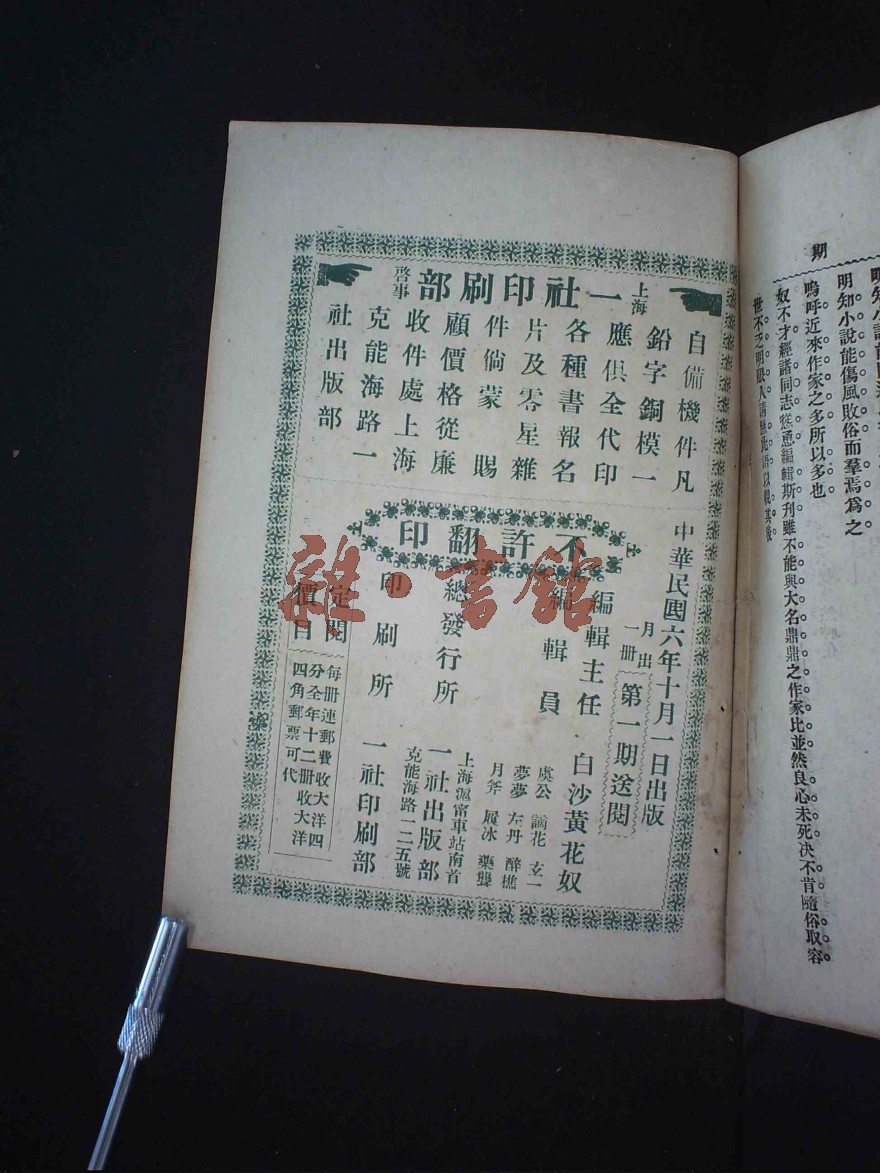 期
明知小說能傷風敗俗而羣焉爲之
嗚呼近來作家之多所以多也
奴不才經諸同志慫恿編輯斯刊雖不能與大名鼎鼎之作家比並然良心未死决不肯隨俗取容
上海一社印刷部啓事
自備機件凡
鉛字銅模一
應俱全代印
各種書報名
片及零星雜
件倘蒙賜
顧價格從廉
收件處上海
克能海路一
社出版部
中華民國六年十月一日出版
月出一冊
第一期送閱
不許翻印
編輯主任 白沙黃花奴
編輯員
虞公 諭花 玄一
夢夢 左丹 醉樵
月斧 履冰 藥聾
總發行所
上海滬甯車站南首
一社出版部
克能海路一二五號
印刷所 一社印刷部
定閱價目
每册連郵費收大洋四
分全年十二册收大洋
四角郵票可代
雜·書館